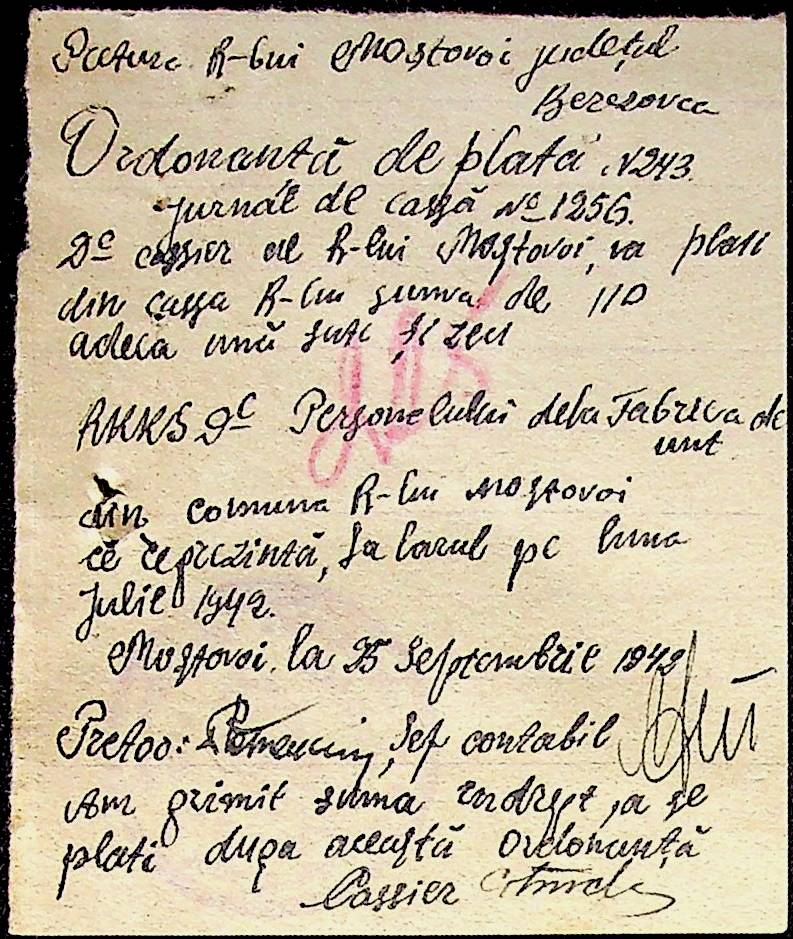 Pretura R-lui Mostovoi județul
Berezovca
Ordonantă de plată N 243.
jurnal de cassă № 1256.
Dc cassier al R-lui Mostovoi, va plati
din cassa R-lui suma de 110
adecaună suti și zeci
RKKS Dc Personelului dela Fabrica de
unt
din comuna R-lui Mostovoi
ce reprezintă, salarul pe luna
Julie 1942.
Mostovoi la 25 Septembrie 1942
Pretor: șef contabil
Am primit suma indrept, a se
plati după aceastā Ordonanță
Cassier